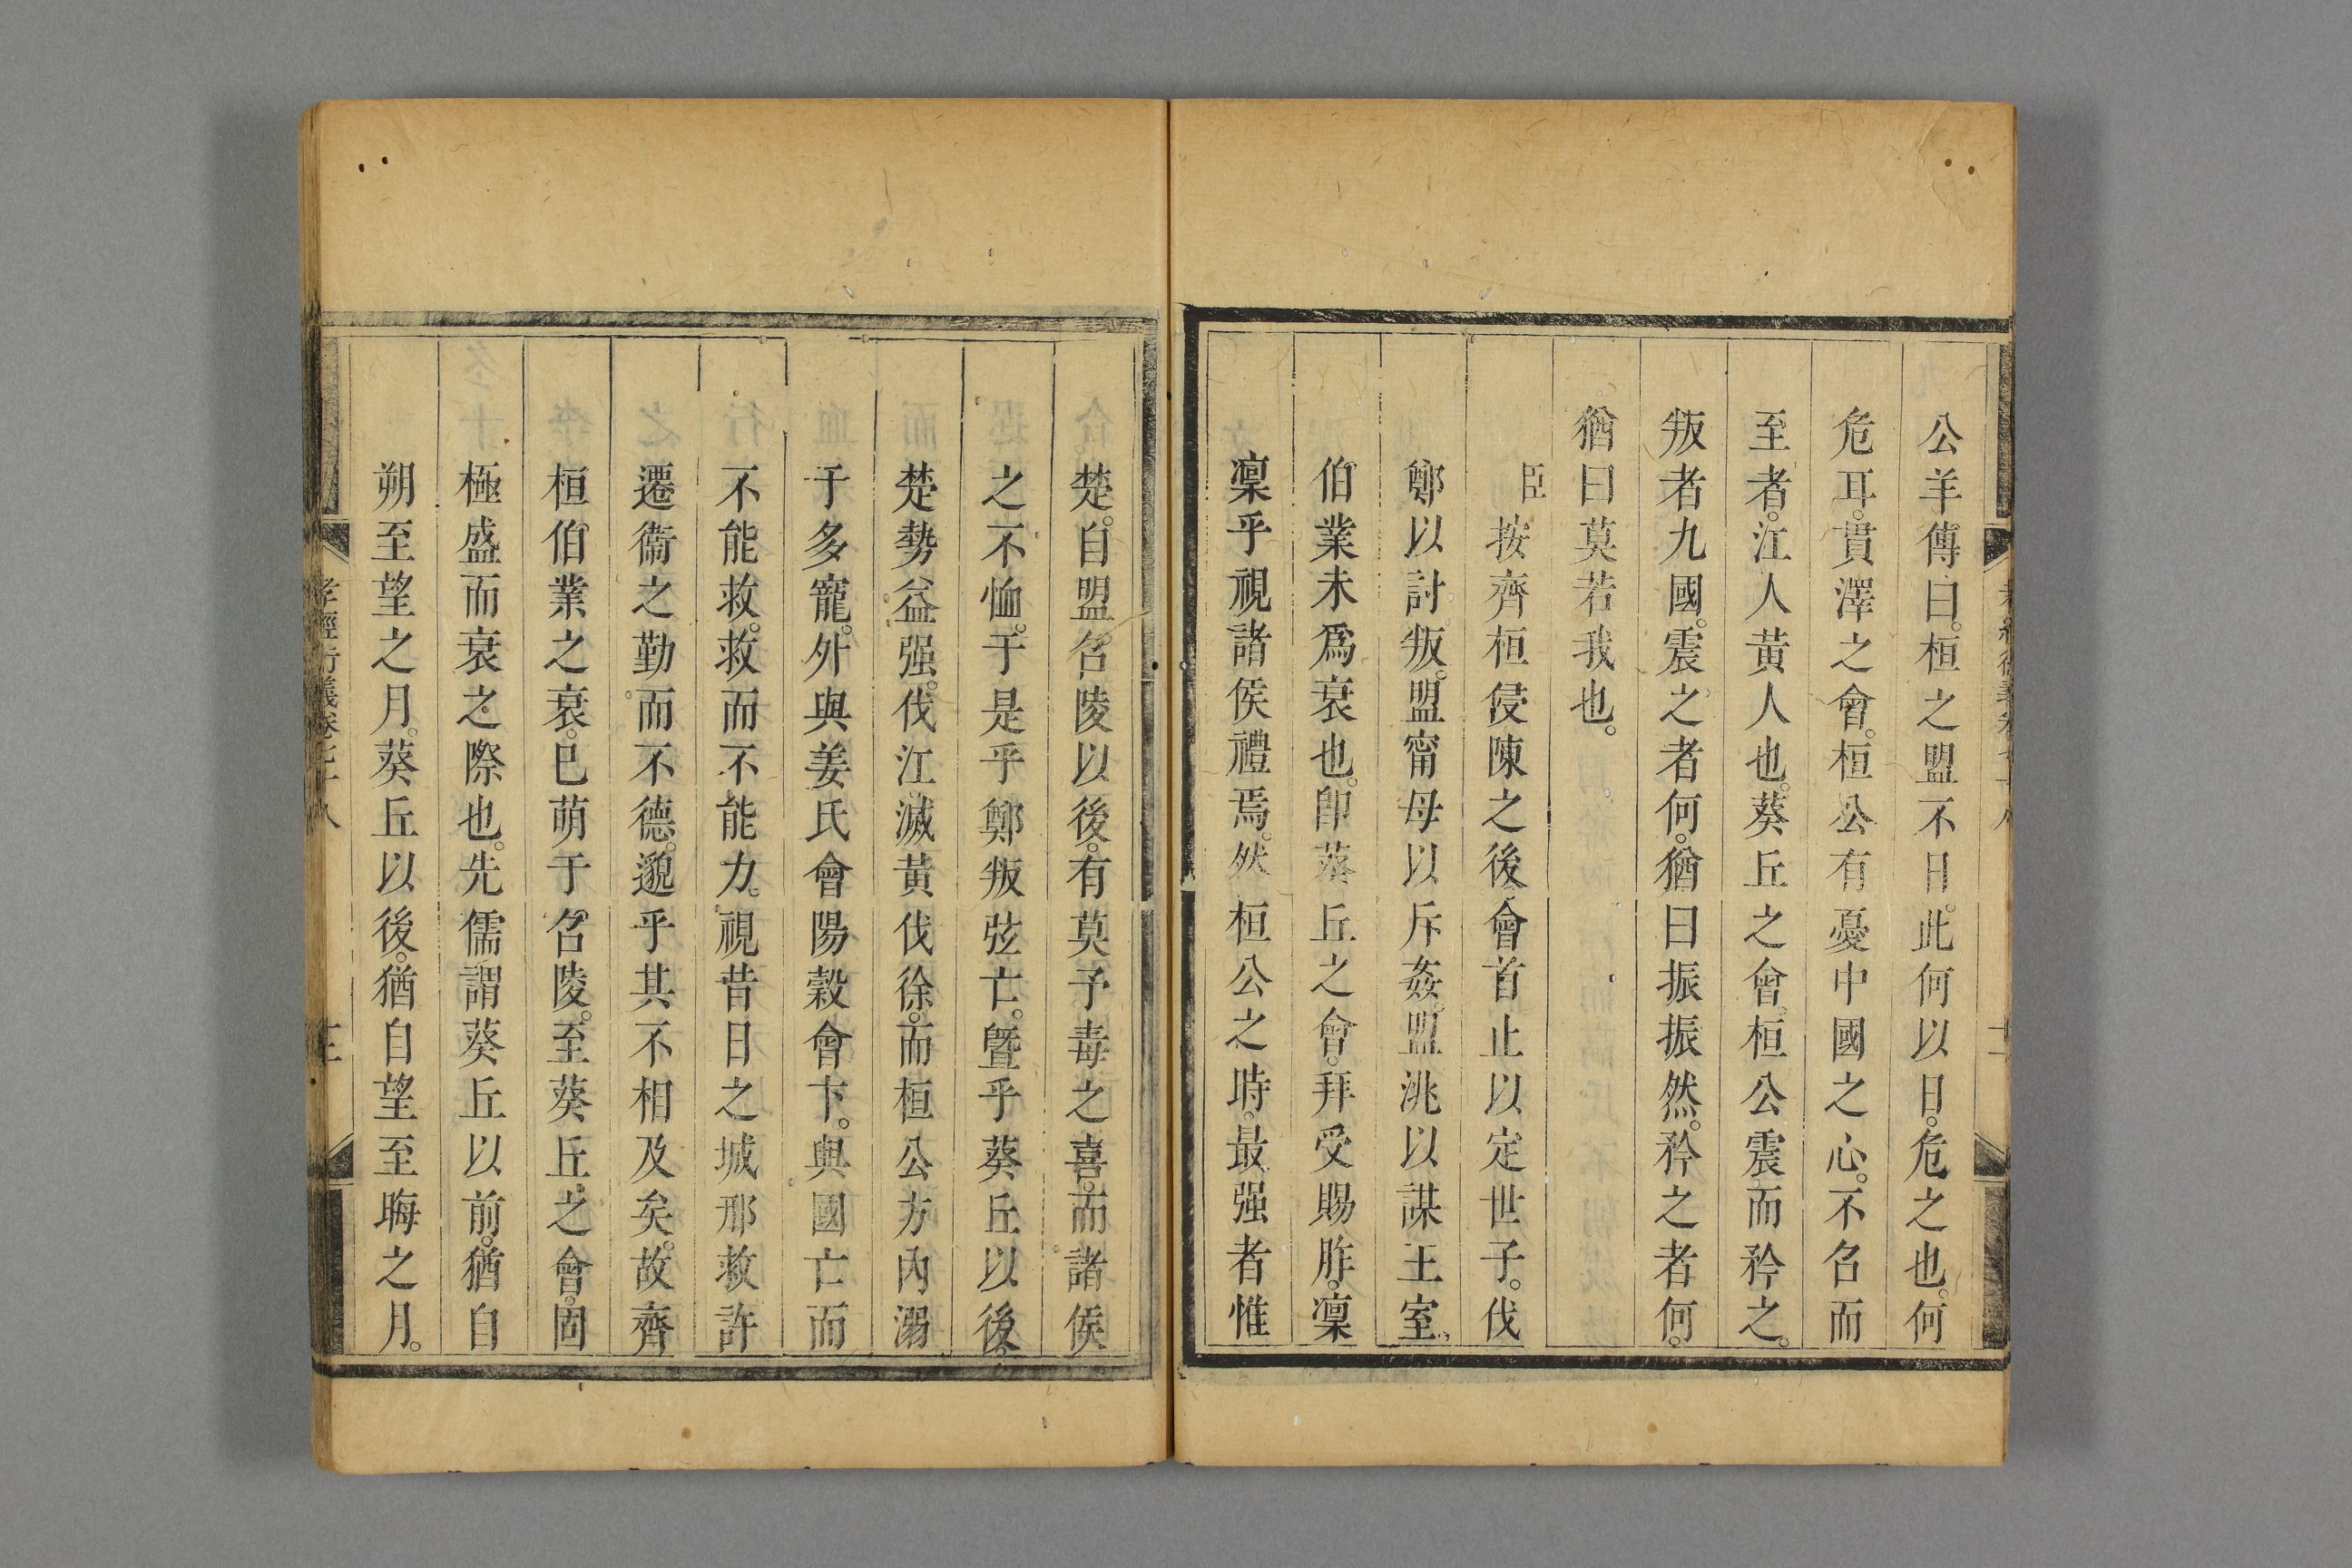 公羊傳曰。桓之盟不日。此何以日。危之也。何
危耳。貫澤之會。桓公有憂中國之心。不召而
至者。江人黃人也。葵丘之會。桓公震而矜之。
叛者九國。震之者何。猶曰振振然。矜之者何。
猶曰莫若我也。
臣按齊桓侵陳之後。會首止以定世子。伐
鄭以討叛。盟甯母以斥姦。盟洮以謀王室。
伯業未爲衰也。卽葵丘之會。拜受賜胙。凜
凜乎視諸侯禮焉。然桓公之時。最强者惟
楚。自盟召陵以後。有莫予毒之喜。而諸侯
之不恤。于是乎鄭叛弦亡。曁乎葵丘以後。
楚勢益强。伐江滅黃伐徐。而桓公方內溺
于多寵。外與姜氏會陽穀會卞。與國亡而
不能救。救而不能力。視昔日之城邢救許
遷衞之勤而不德。邈乎其不相及矣。故齊
桓伯業之衰。已萌于召陵。至葵丘之會。固
極盛而衰之際也。先儒謂葵丘以前。猶自
朔至望之月。葵丘以後。猶自望至晦之月。
孝經衍義卷七十八